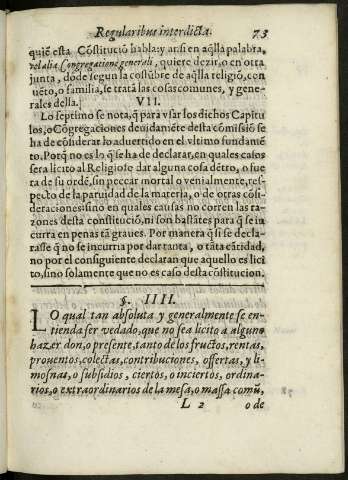 Regularibus interdicta. 73
quiē esta Cōstitució habla: y ansi en aq̃lla palabra,
vel alia Congregatione generali, quiere dezir, o en otra
junta, dōde segun la costūbre de aq̃lla religió, con
uēto, o familia, se tratā las cosas comunes, y gene-
rales della. VII.
Lo septimo se nota, q̃ para vsar los dichos Capitu
los, o Cōgregaciones deuidamēte desta comissió se
ha de cōsiderar lo aduertido en el vltimo fundamē
to. Porq̃ no es lo q̃ se ha de declarar, en quales casos
sera licito al Religioso dar alguna cosa dētro, o fue
ra de su ordē, sin peccar mortal o venialmente, res-
pecto de la paruidad de la materia, o de otras cōsi
deraciones: sino en quales causas no corren las ra-
zones desta constitució, ni son bastātes para q̃ se in
curra en penas tā graues. Por manera q̃ si se decla-
rasse q̃ no se incurria por dar tanta, o tāta cātidad,
no por el consiguiente declaran que aquello es lici
to, sino solamente que no es caso desta cōstitucion.
§. IIII.
LO qual tan absoluta y generalmente se en-
tienda ser vedado, que no sea licito a alguno
hazer don, o presente, tanto de los fructos, rentas,
prouentos, colectas, contribuciones, offertas, y li-
mosnas, o subsidios, ciertos, o inciertos, ordina-
rios, o extraordinarios de la mesa, o massa comū,
L 2 o de